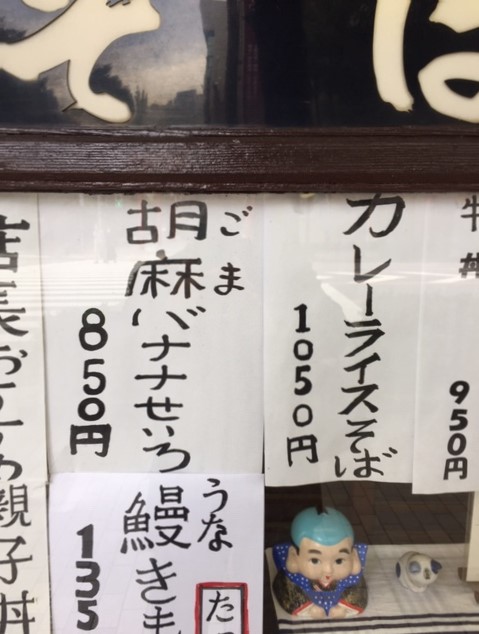 そば
牛丼
950円
カレーライスそば
1050円
ごま
胡麻バナナせいろ
850円
うな
鰻きも
135
店長おすすめ親子丼